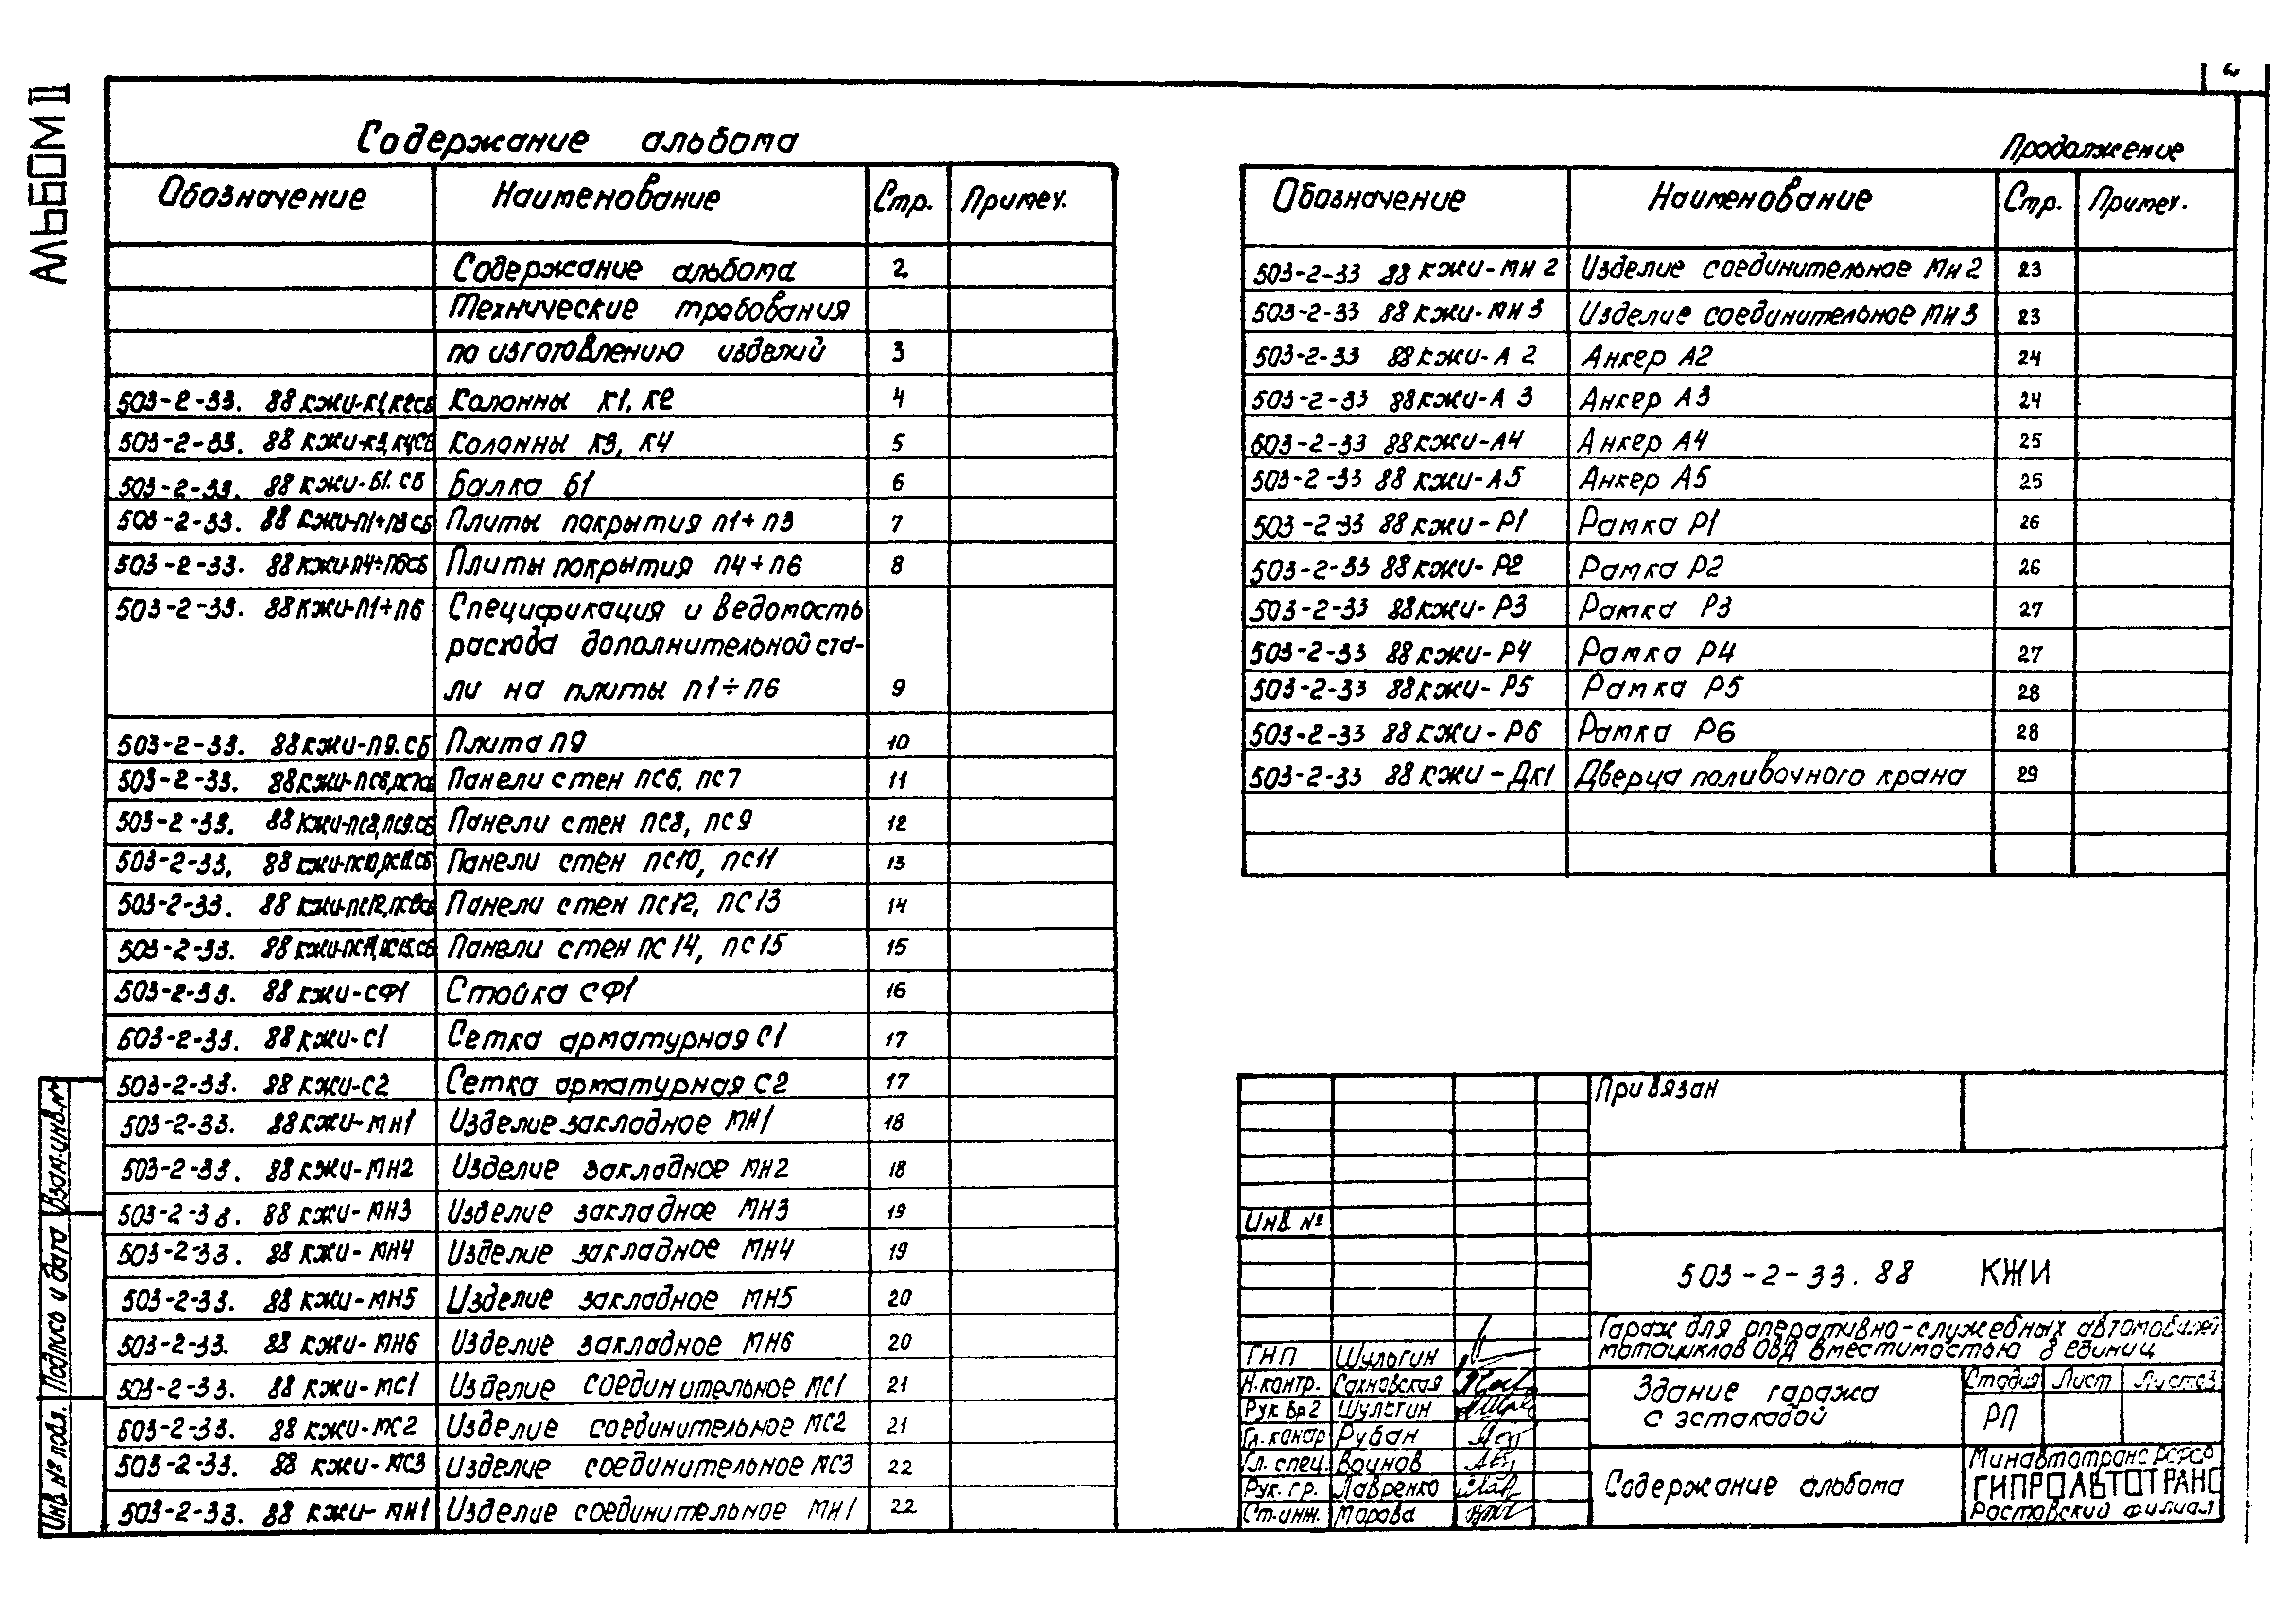 АЛЬБОМ II
2
Содержание альбома
Обозначение Наименование Стр. Примеч.
Содержание альбома 2
Технические требования
по изготовлению изделий 3
503-2-33. 88 КЖИ-К1,К2СБ Колонны К1, К2 4
503-2-33. 88 КЖИ-К3,К4СБ Колонны К3, К4 5
503-2-33. 88 КЖИ-Б1.СБ Балка Б1 6
503-2-33. 88 КЖИ-П1÷П3СБ Плиты покрытия П1÷П3 7
503-2-33. 88 КЖИ-П4÷П6СБ Плиты покрытия П4÷П6 8
503-2-33. 88 КЖИ-П1÷П6 Спецификация и ведомость
расхода дополнительной ста-
ли на плиты П1÷П6 9
503-2-33. 88 КЖИ-П9.СБ Плита П9 10
503-2-33. 88 КЖИ-ПС6,ПС7СБ Панели стен ПС6, ПС7 11
503-2-33. 88 КЖИ-ПС8,ПС9.СБ Панели стен ПС8, ПС9 12
503-2-33. 88 КЖИ-ПС10,ПС11.СБ Панели стен ПС10, ПС11 13
503-2-33. 88 КЖИ-ПС12,ПС13СБ Панели стен ПС12, ПС13 14
503-2-33. 88 КЖИ-ПС14,ПС15.СБ Панели стен ПС14, ПС15 15
503-2-33. 88 КЖИ-СФ1 Стойка СФ1 16
503-2-33. 88 КЖИ-С1 Сетка арматурная С1 17
503-2-33. 88 КЖИ-С2 Сетка арматурная С2 17
503-2-33. 88 КЖИ-МН1 Изделие закладное МН1 18
503-2-33. 88 КЖИ-МН2 Изделие закладное МН2 18
503-2-33. 88 КЖИ-МН3 Изделие закладное МН3 19
503-2-33. 88 КЖИ-МН4 Изделие закладное МН4 19
503-2-33. 88 КЖИ-МН5 Изделие закладное МН5 20
503-2-33. 88 КЖИ-МН6 Изделие закладное МН6 20
503-2-33. 88 КЖИ-МС1 Изделие соединительное МС1 21
503-2-33. 88 КЖИ-МС2 Изделие соединительное МС2 21
503-2-33. 88 КЖИ-МС3 Изделие соединительное МС3 22
503-2-33. 88 КЖИ-МН1 Изделие соединительное МН1 22
Продолжение
Обозначение Наименование Стр. Примеч.
503-2-33 88 КЖИ-МН2 Изделие соединительное МН2 23
503-2-33 88 КЖИ-МН3 Изделие соединительное МН3 23
503-2-33 88 КЖИ-А2 Анкер А2 24
503-2-33 88 КЖИ-А3 Анкер А3 24
503-2-33 88 КЖИ-А4 Анкер А4 25
503-2-33 88 КЖИ-А5 Анкер А5 25
503-2-33 88 КЖИ-Р1 Рамка Р1 26
503-2-33 88 КЖИ-Р2 Рамка Р2 26
503-2-33 88 КЖИ-Р3 Рамка Р3 27
503-2-33 88 КЖИ-Р4 Рамка Р4 27
503-2-33 88 КЖИ-Р5 Рамка Р5 28
503-2-33 88 КЖИ-Р6 Рамка Р6 28
503-2-33 88 КЖИ-ДК1 Дверца поливочного крана 29
Привязан
Инв №
503-2-33.88 КЖИ
Гараж для оперативно-служебных автомобилей
мотоциклов ОВД вместимостью 8 единиц
ГНП Шульгин
Н.контр. Сахновская
Рук бр2 Шульгин
Гл. констр Рубан
Гл. спец. Воинов
Рук. гр. Лавренко
Ст.инж. Марова
Здание гаража
с эстакадой
Стадия Лист Листов
РП
Содержание альбома
Минавтотранс РСФСР
ГИПРОАВТОТРАНС
Ростовский филиал
Взам.инв.№
Подпись и дата
Инв № подл.